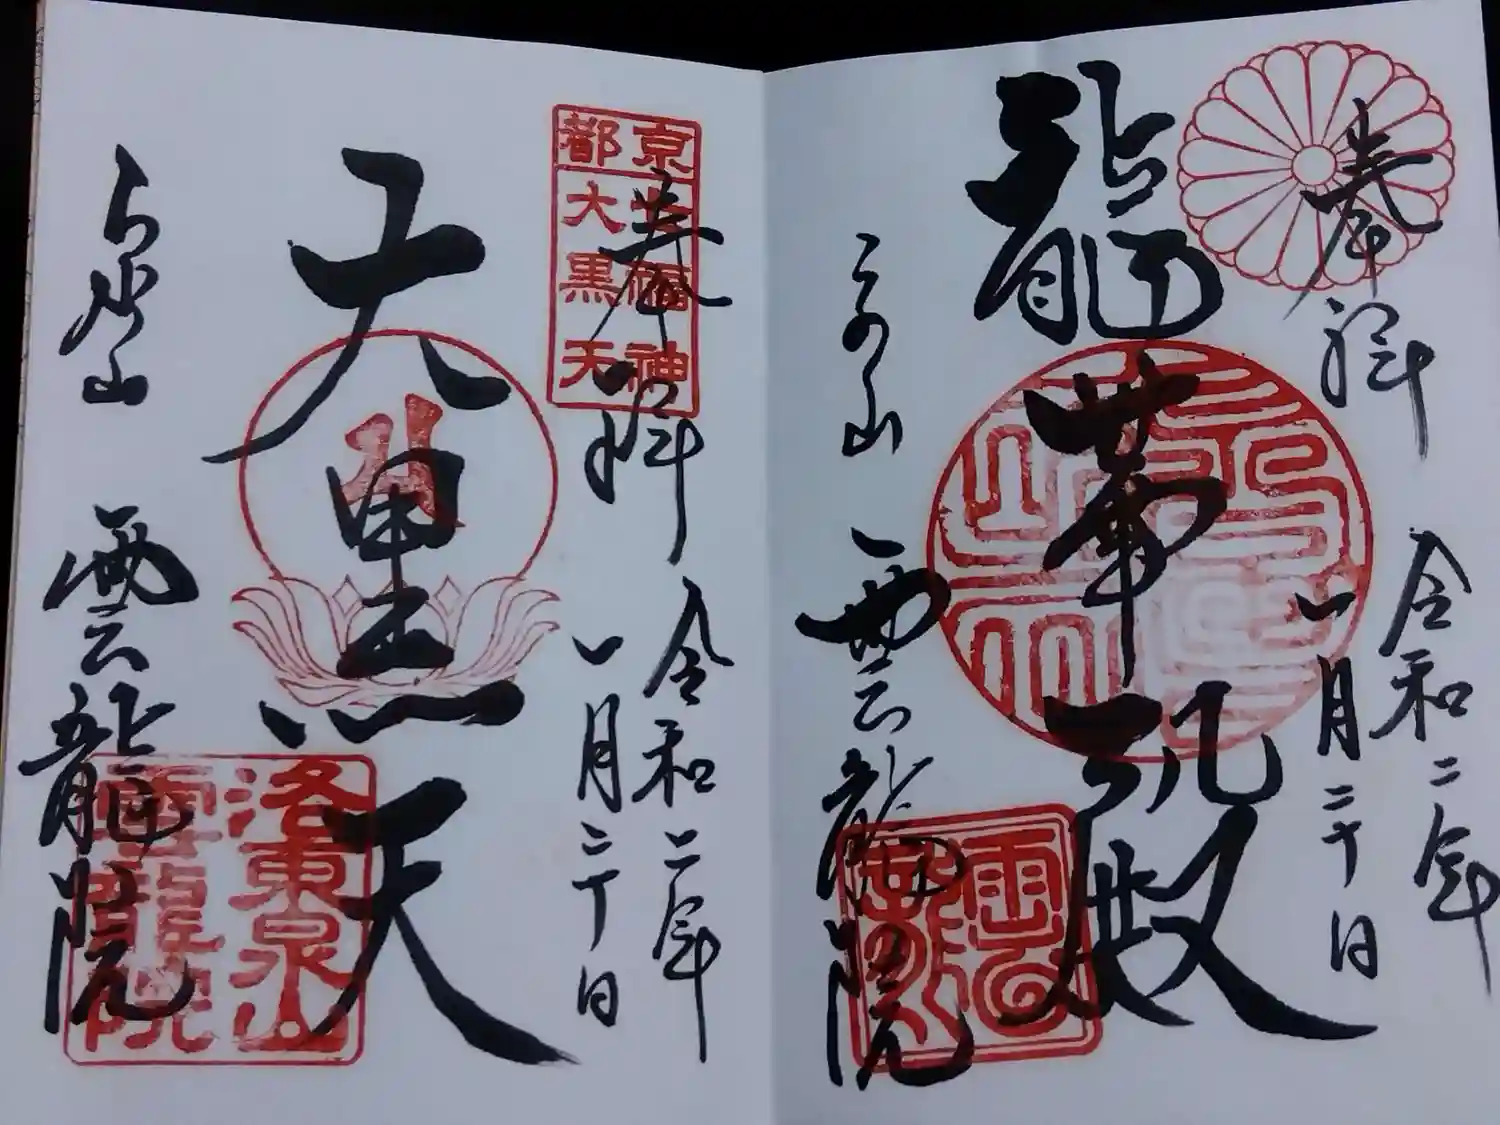 奉拝
令和二年
一月二十日
龍華殿
雲龍院
京都
福神
大黒天
奉拝
令和二年
一月二十日
大黒天
雲龍院
洛東泉山
雲龍院